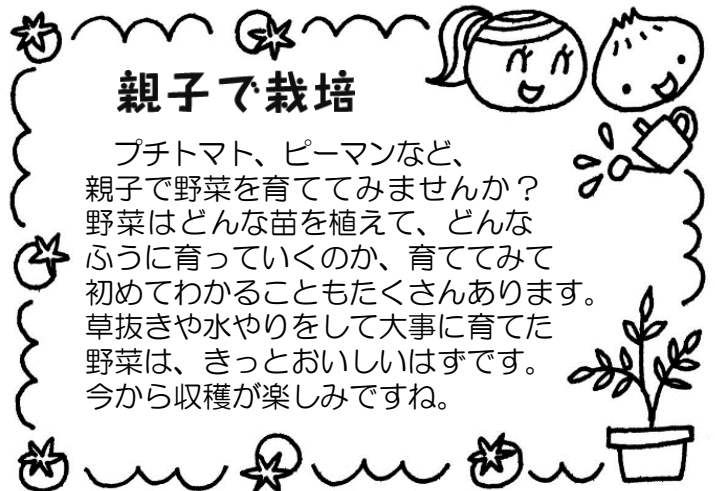 親子で栽培
　プチトマト、ピーマンなど、
親子で野菜を育ててみませんか？
野菜はどんな苗を植えて、どんな
ふうに育っていくのか、育ててみて
初めてわかることもたくさんあります。
草抜きや水やりをして大事に育てた
野菜は、きっとおいしいはずです。
今から収穫が楽しみですね。